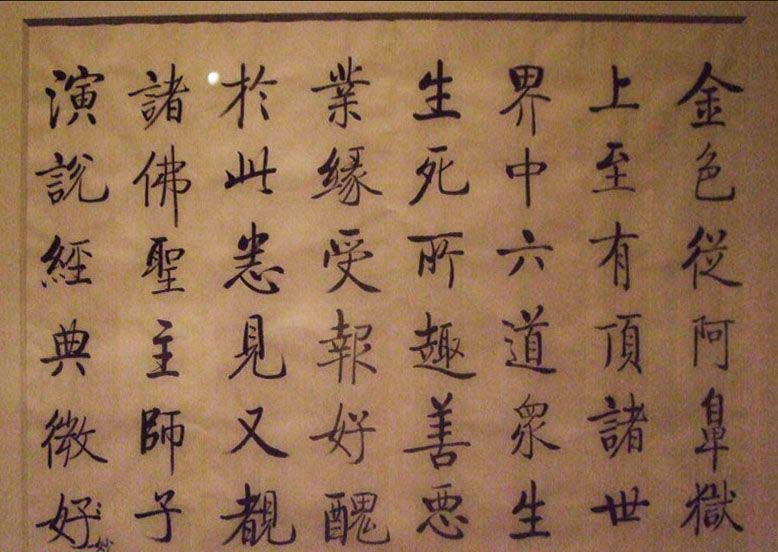 金色從阿鼻獄
上至有頂諸世
界中六道眾生
生死所趣善惡
業緣受報好醜
於此悉見又覩
諸佛聖主師子
演說經典微好
妙